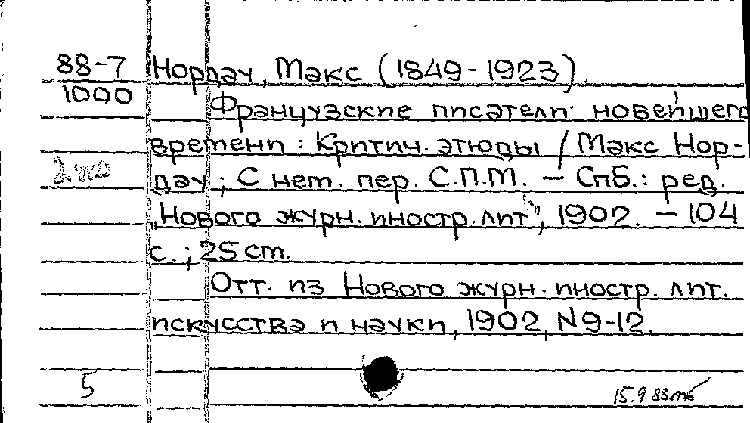 88-7 Нордау, Макс (1849-1923).
1000 Французские писатели новейшего
времени : Критич. этюды / Макс Нор-
2 экз дау ; С нем. пер. С.П.М. — Спб. : ред.
„Нового журн. иностр. лит", 1902. — 104
с. ; 25 cm.
Отт. из Нового журн. иностр. лит.
искусства и науки, 1902, N 9-12.
5